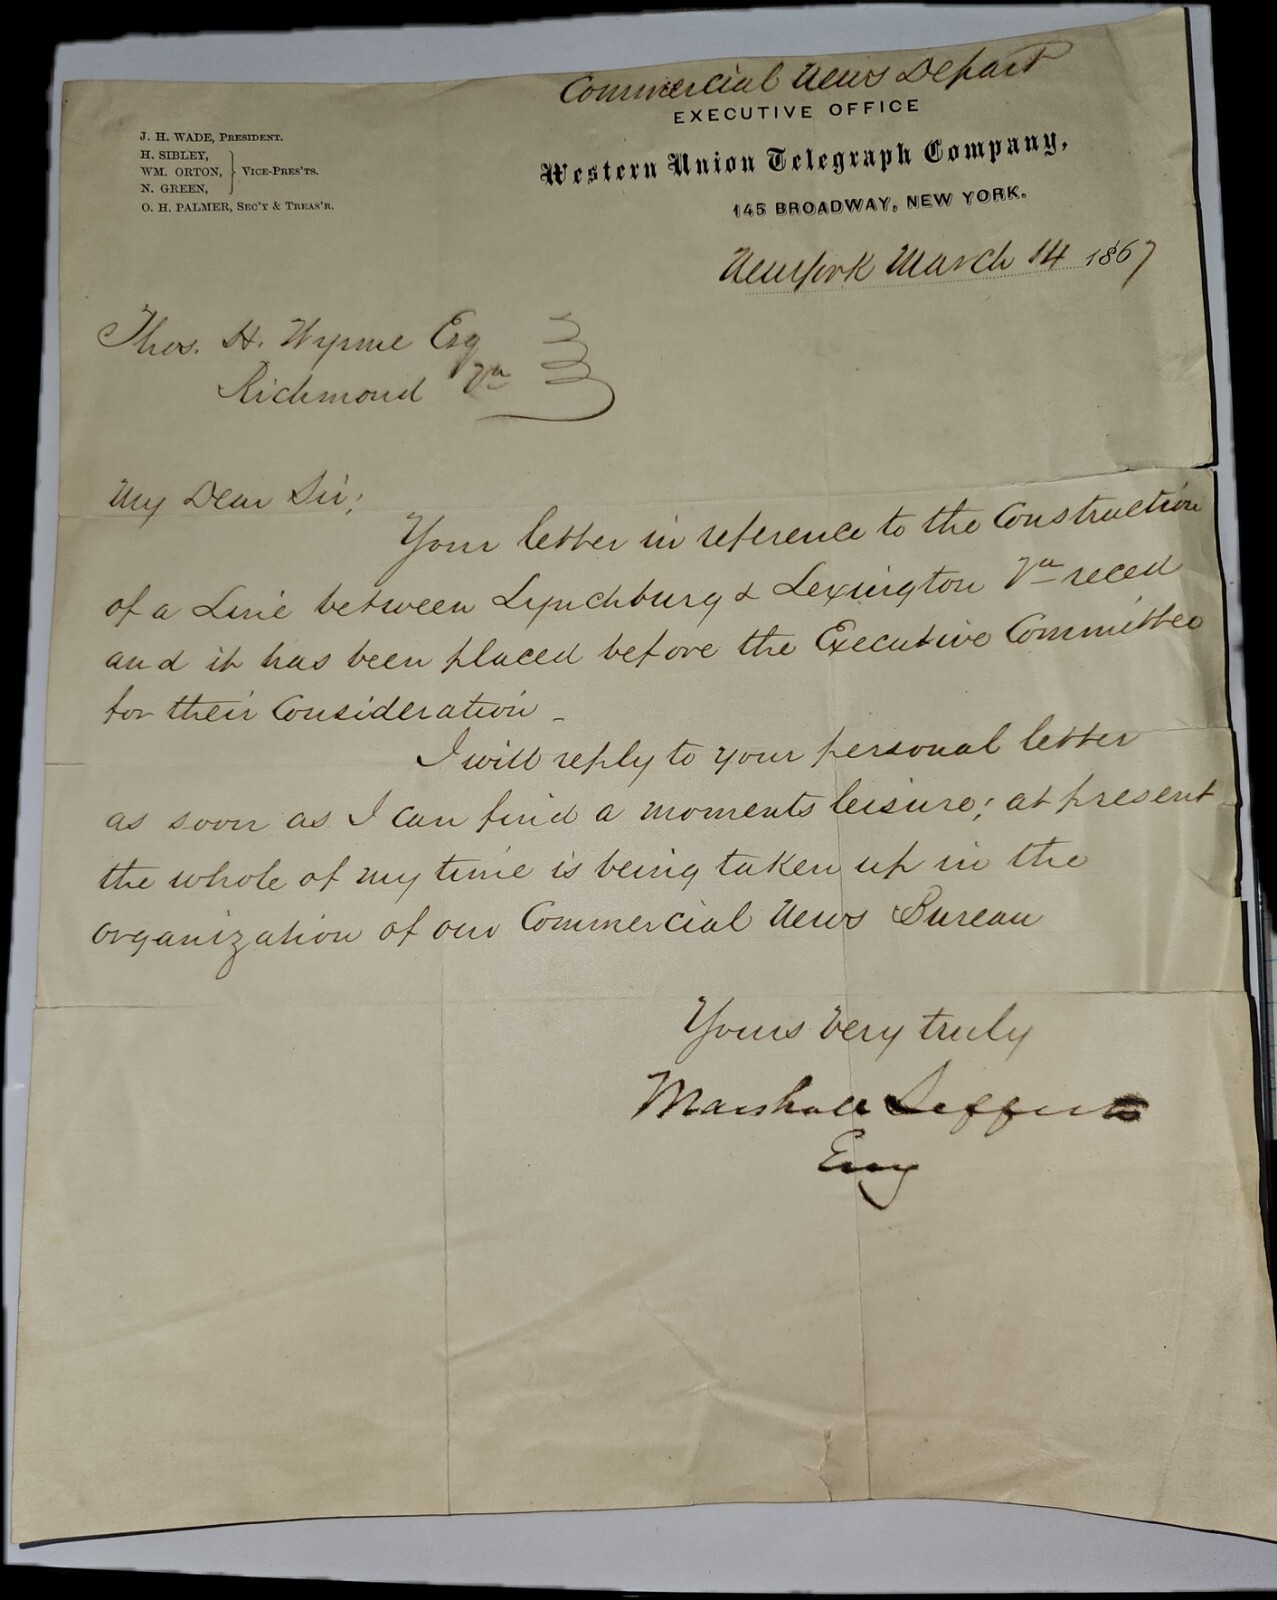 Commercial News Depart
EXECUTIVE OFFICE
Western Union Telegraph Company,
145 BROADWAY, NEW YORK.
J. H. WADE, PRESIDENT.
H. SIBLEY,
WM. ORTON, } VICE-PRES'TS.
N. GREEN,
O. H. PALMER, SEC'Y & TREAS'R.
New York March 14 1867
Thos. H. Wynne Esq
Richmond Va
My Dear Sir;
Your letter in reference to the Construction
of a Line between Lynchburg & Lexington Va recd
and it has been placed before the Executive Committee
for their Consideration _
I will reply to your personal letter
as soon as I can find a moments leisure; at present
the whole of my time is being taken up in the
organization of our Commercial News Bureau
Yours very truly
Marshall Lefferts
Eng